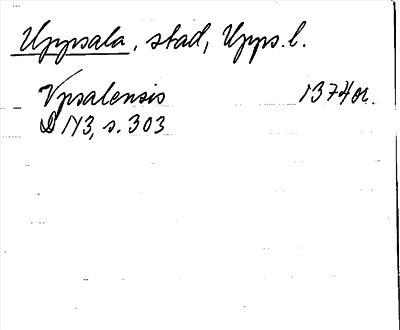 Uppsala, stad, Upps. l.
Vpsalensis 1374 or.
D N3, s. 303